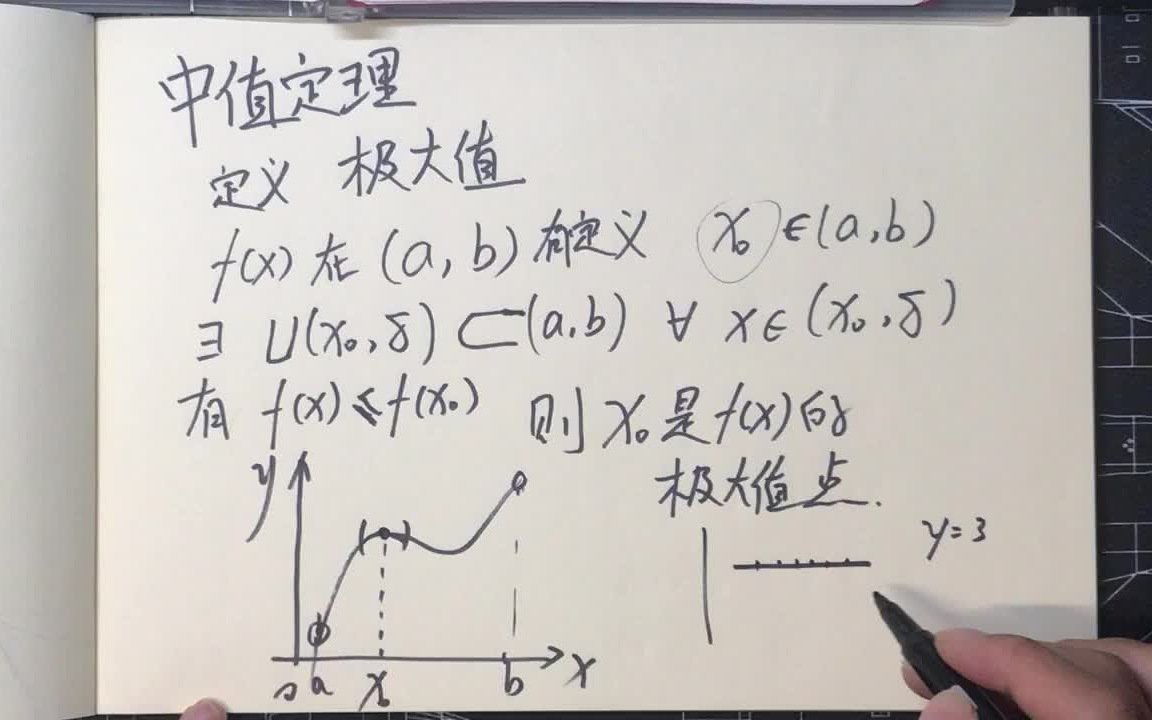 中值定理
定义 极大值
f(x) 在 (a, b) 有定义 x₀ ∈ (a, b)
∃ U(x₀, δ) ⊂ (a, b) ∀ x ∈ (x₀, δ)
有 f(x) ≤ f(x₀) 则 x₀ 是 f(x) 的
极大值点.
y
y=3
o a x₀ b x